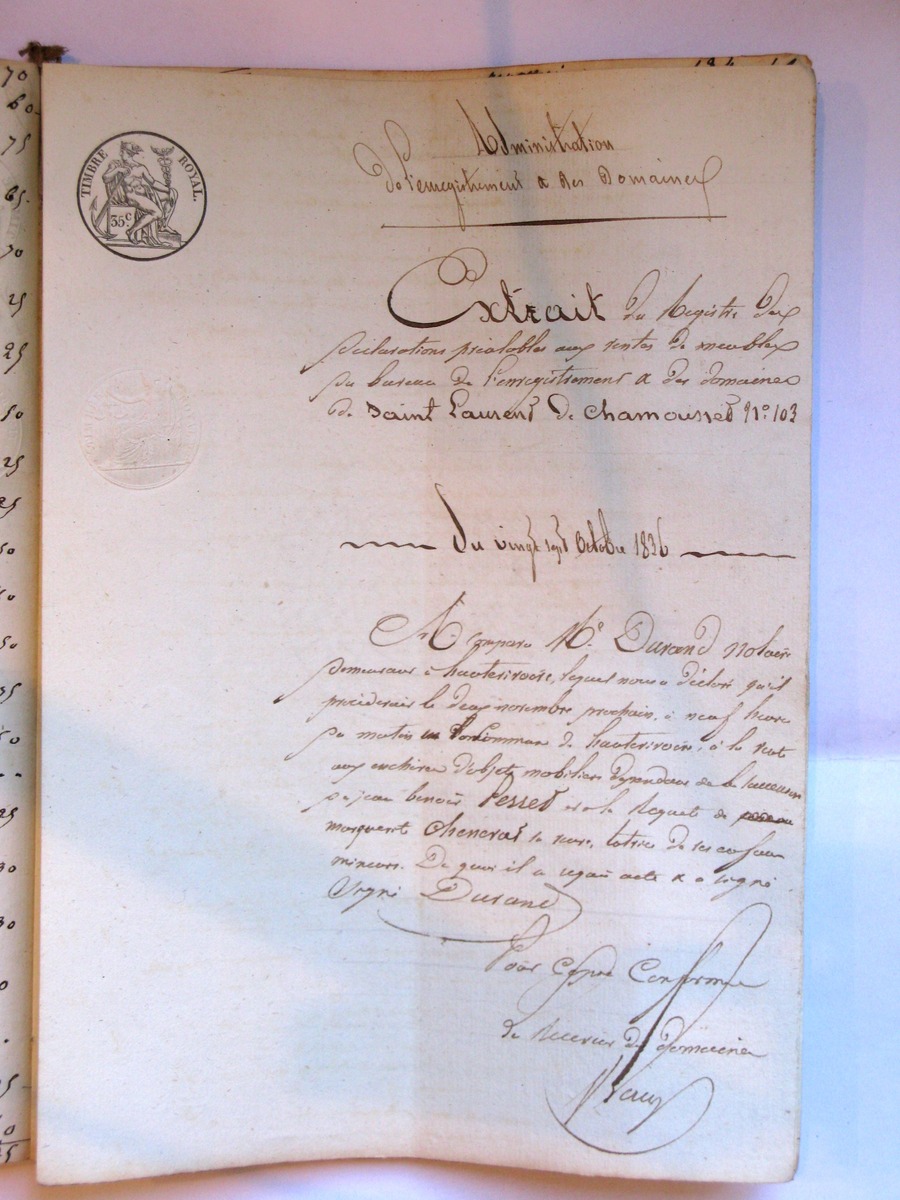 TIMBRE ROYAL.
35 c.
Administration
De l'enregistrement & des Domaines
Extrait du Registre des
déclarations préalables aux ventes de meubles
du bureau de l'enregistrement & des domaines
de Saint Laurent de Chamousset N.º 103
Du vingt sept Octobre 1836
A comparu Me. Durand Notaire
demeurant à hauterivoire, lequel nous a déclaré qu'il
procéderait le deux novembre prochain, à neuf heures
du matin en commune de hauterivoire, à la vente
aux enchères d'objets mobiliers dépendans de la succession
de jean benoit Pesset et à la Requete de
marguerite Chenevat sa veuve, tutrice de ses enfans
mineurs. De quoi il a requis acte & a signé
Signé Durand
Pour Copie Conforme
le Receveur des domaines
70
60
75
65.
70
25
25
50
25
50
50
50
35
50
25
30
30